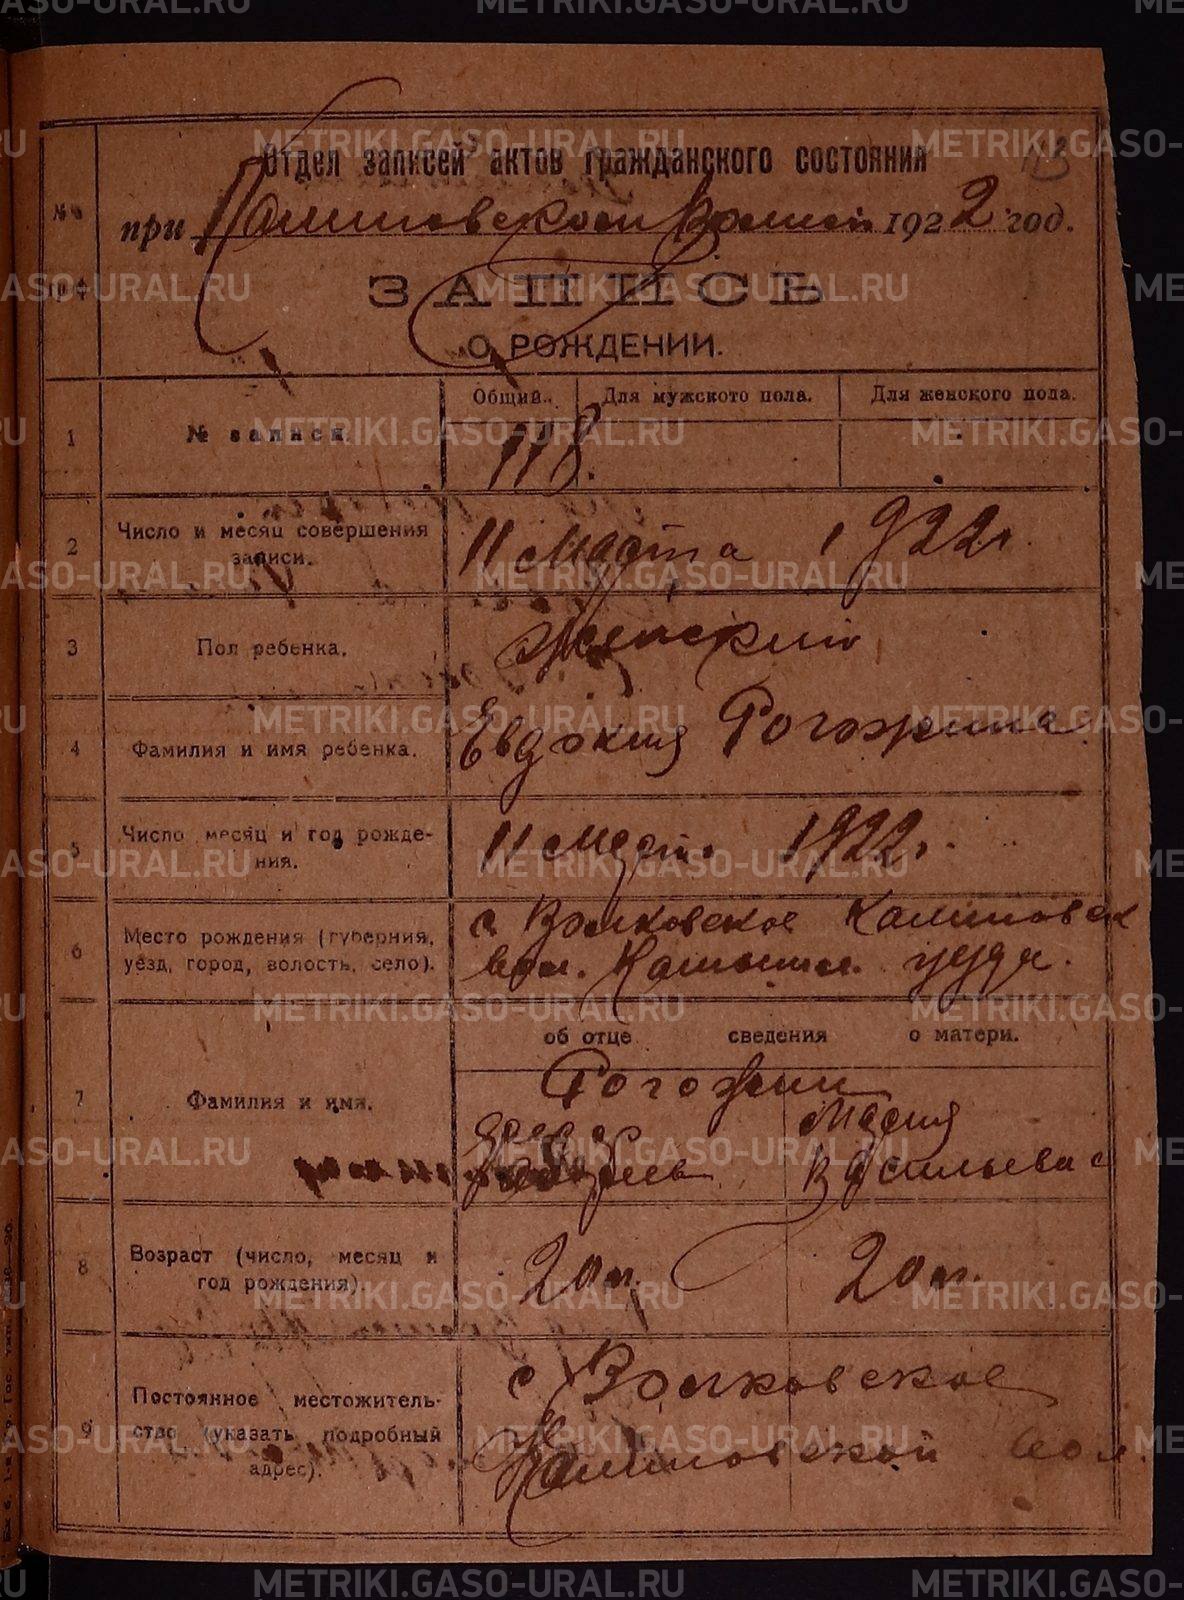 METRIKI.GASO-URAL.RU
Отдел записей актов гражданского состояния
№
при Калиновской Волисп. 1922 год.
ЗАПИСЬ
О РОЖДЕНИИ.
Общий. Для мужского пола. Для женского пола.
1 № записи. 118.
2 Число и месяц совершения
записи. 11 Марта 1922 г.
3 Пол ребенка. Женский
4 Фамилия и имя ребенка. Евдокия Рогожина
5 Число месяц и год рожде-
ния. 11 Март. 1922 г.
6 Место рождения (губерния,
уезд, город, волость, село).
с. Волковское Калиновск
вол. Камышл. уезда.
об отце сведения о матери.
7 Фамилия и имя.
Рогожин
Мария
Васильева
8 Возраст (число, месяц и
год рождения). 20 л. 20 л.
9 Постоянное местожитель-
ство (указать подробный
адрес).
с Волковское
Калиновской вол.